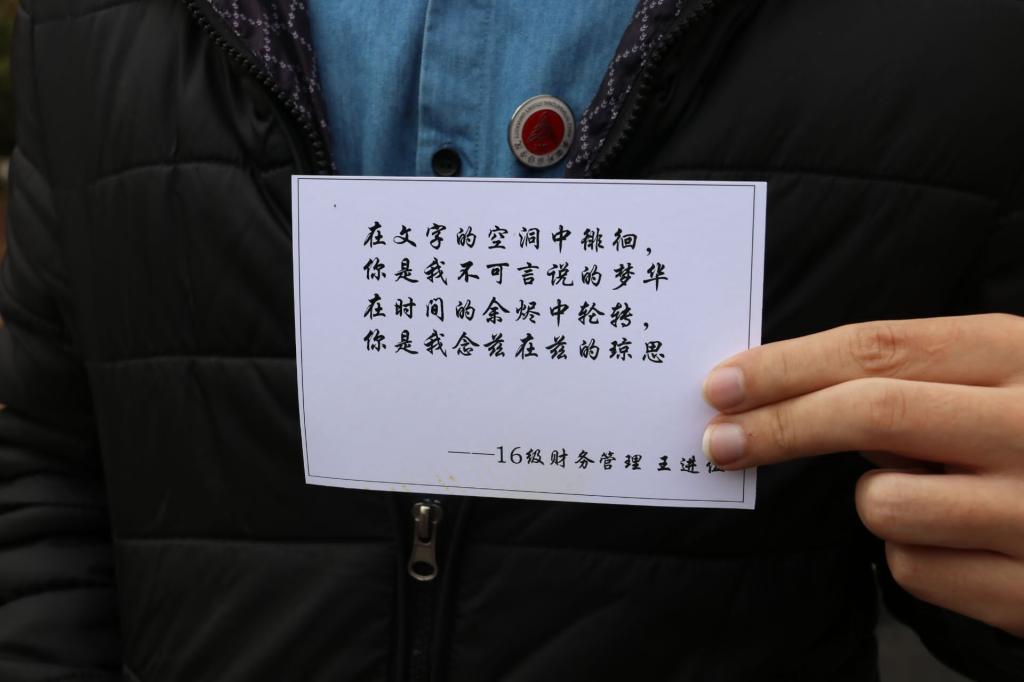 在文字的空洞中徘徊，
你是我不可言说的梦华
在时间的余烬中轮转，
你是我念兹在兹的琼思
——16级财务管理 王进